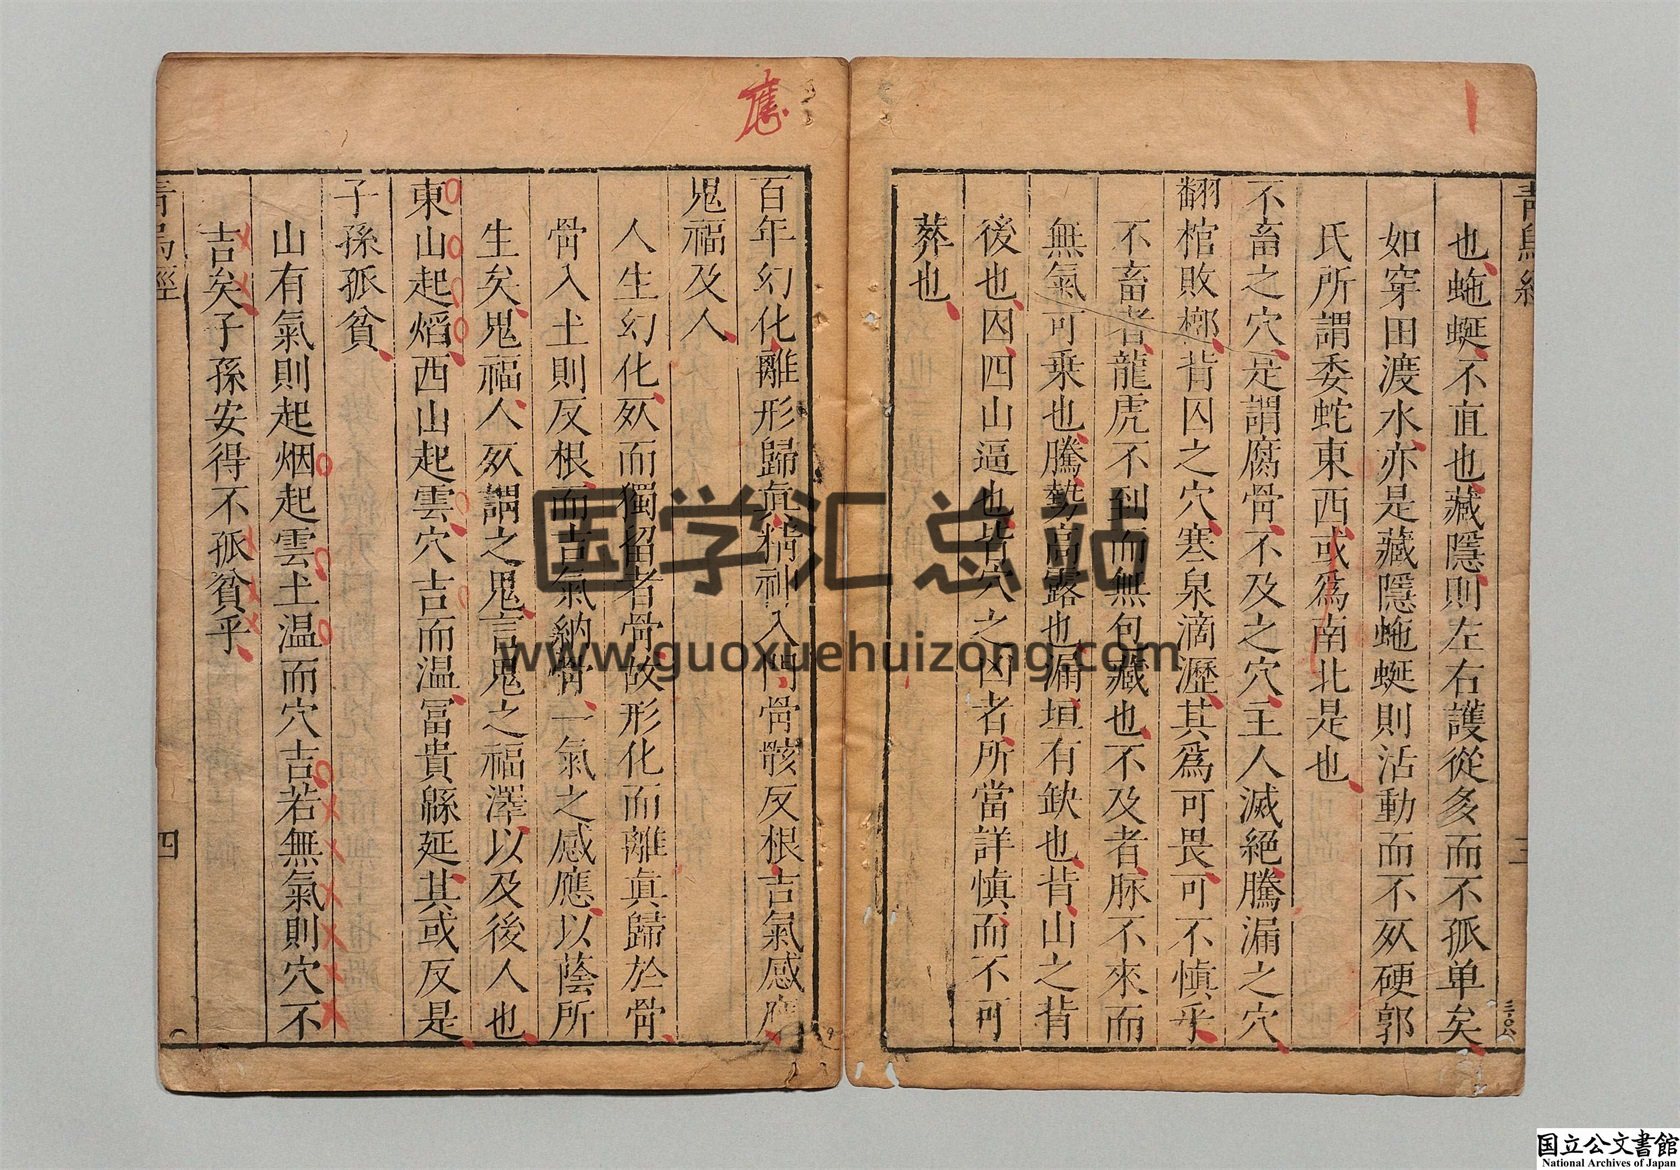 也蜿蜒不直也藏隱則左右護從多而不孤单矣
如穿田渡水亦是藏隱蜿蜒則活動而不死硬郭
氏所謂委蛇東西或爲南北是也
不畜之穴是謂腐骨不及之穴主人滅絕騰漏之穴
翻棺敗槨背囚之穴寒泉滴瀝其爲可畏可不慎乎
不畜者龍虎不到而無包藏也不及者脉不來而
無氣可乗也騰勢高露也漏垣有缺也背山之背
後也囚四山逼也皆穴之凶者所當詳慎而不可
葬也
三
三〇六
應
百年幻化離形歸真精神入門骨骸反根吉氣感應
鬼福及人
人生幻化死而獨留者骨故形化而離真歸於骨
骨入土則反根而吉氣納骨一氣之感應以蔭所
生矣鬼福人死謂之鬼言鬼之福澤以及後人也
東山起熖西山起雲穴吉而温冨貴綿延其或反是
子孫孤貧
山有氣則起烟起雲土温而穴吉若無氣則穴不
吉矣子孫安得不孤貧乎
青烏經
四
国学汇总站
www.guoxuehuizong.com
国立公文書館
National Archives of Japan